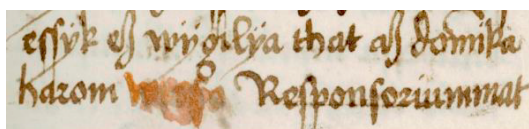 essyk eʒ wÿgilÿa that aʒ domīka
harom Responsoriummat